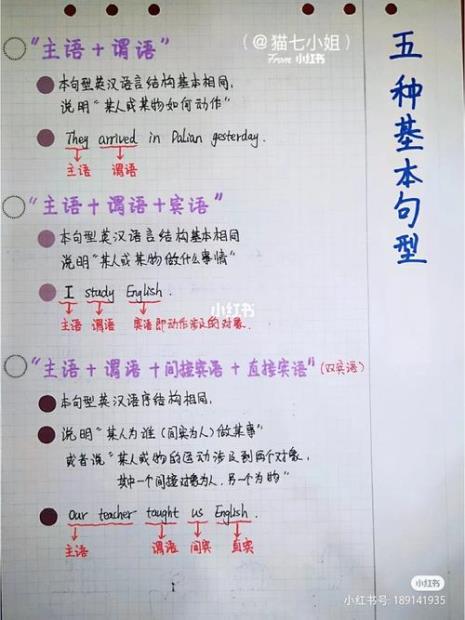 五种基本句型
(@猫七小姐)
From 小红书
"主语+谓语"
本句型英汉语言结构基本相同,
说明"某人或某物如何动作"
They arrived in Dalian yesterday.
主语 谓语
"主语+谓语+宾语"
本句型英汉语言结构基本相同
说明"某人或某物做什么事情"
I study English.
小红书
主语 谓语 宾语即动作涉及的对象.
"主语+谓语+间接宾语+直接宾语"(双宾语)
本句型英汉语序结构相同,
说明"某人为谁(间宾为人)做某事"
或者说"某人或物的运动涉及到两个对象,
其中一个间接对象为人,另一个为物"
Our teacher taught us English.
主语 谓语 间宾 直宾
1
小红书
小红书号: 189141935